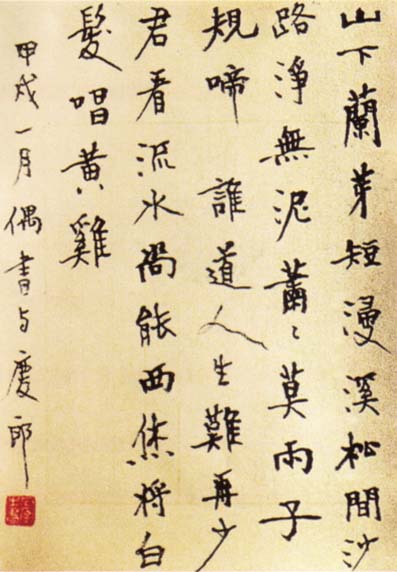 山下蘭芽短浸溪松間沙
路淨無泥蕭〻莫雨子
規啼 誰道人生難再少
君看流水尚能西休將白
髮唱黃雞
甲戌一月偶書与慶郎